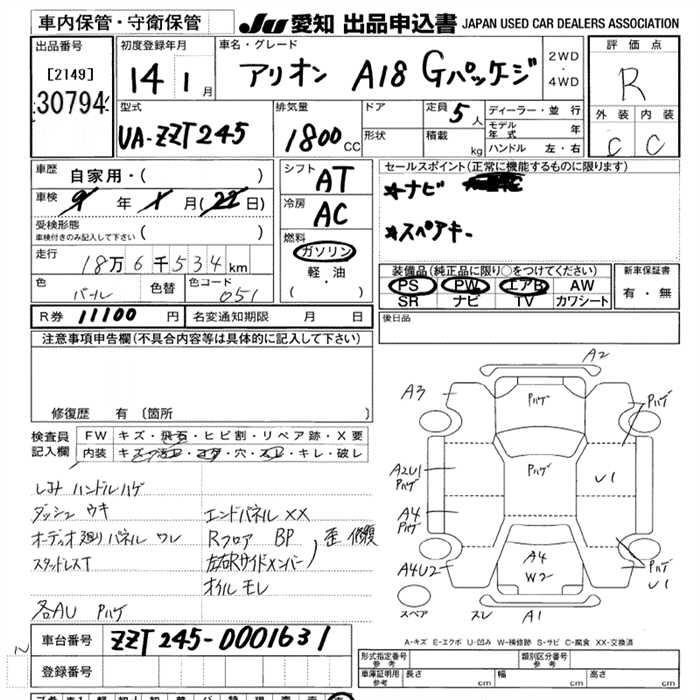 車内保管・守衛保管 JU 愛知 出品申込書 JAPAN USED CAR DEALERS ASSOCIATION
出品番号 初度登録年月 車名・グレード 2WD・4WD 評価点
[2149] 14 1月 アリオン A18 Gパッケージ R
30794
型式 排気量 ドア 定員 5人 ディーラー・並行 外装 内装
UA-ZZT245 1800CC 形状 積載 kg モデル年式 年 C C
ハンドル 左・右
車歴 自家用・( ) シフト AT セールスポイント(正常に機能するものに限ります)
車検 年 月( 日) 冷房 AC *ナビ
受検形態 ( ) *スペアキー
車検付きのみ記入して下さい 燃料
走行 18万6千534km ガソリン 装備品(純正品に限り○をつけてください) 新車保証書
色 パール 色替 色コード 051 軽・油 PS PW エアB AW 有・無
・( ) SR ナビ TV カワシート
R券 11100円 名変通知期限 月 日 後日品
注意事項申告欄(不具合内容等は具体的に記入して下さい)
修復歴 有 〔箇所 〕
検査員 FW キズ・飛石・ヒビ割・リペア跡・X要
記入欄 内装 キズ・
・穴・
・キレ・破レ
シミ ハンドルハゲ
ダッシュ ウキ エンドパネル XX
オーディオ廻りパネル ワレ Rフロア BP 歪 修復
スタッドレスT 左右Rサイドメンバー
オイル モレ
各AU Pハゲ
A2
A3 Pハゲ Pハゲ
A2U1 Pハゲ Pハゲ U1
A4 Pハゲ
A4U2 A4 W2 Pハゲ U1
スペア スレ A1
A-キズ E-エクボ U-凹み W-補修跡 S-サビ C-腐食 XX-交換済
車台番号 ZZT245-0001631 型式指定番号 参考 類別区分番号 参考
登録番号 車庫証明用 参考 長さ cm 幅 cm 高さ cm